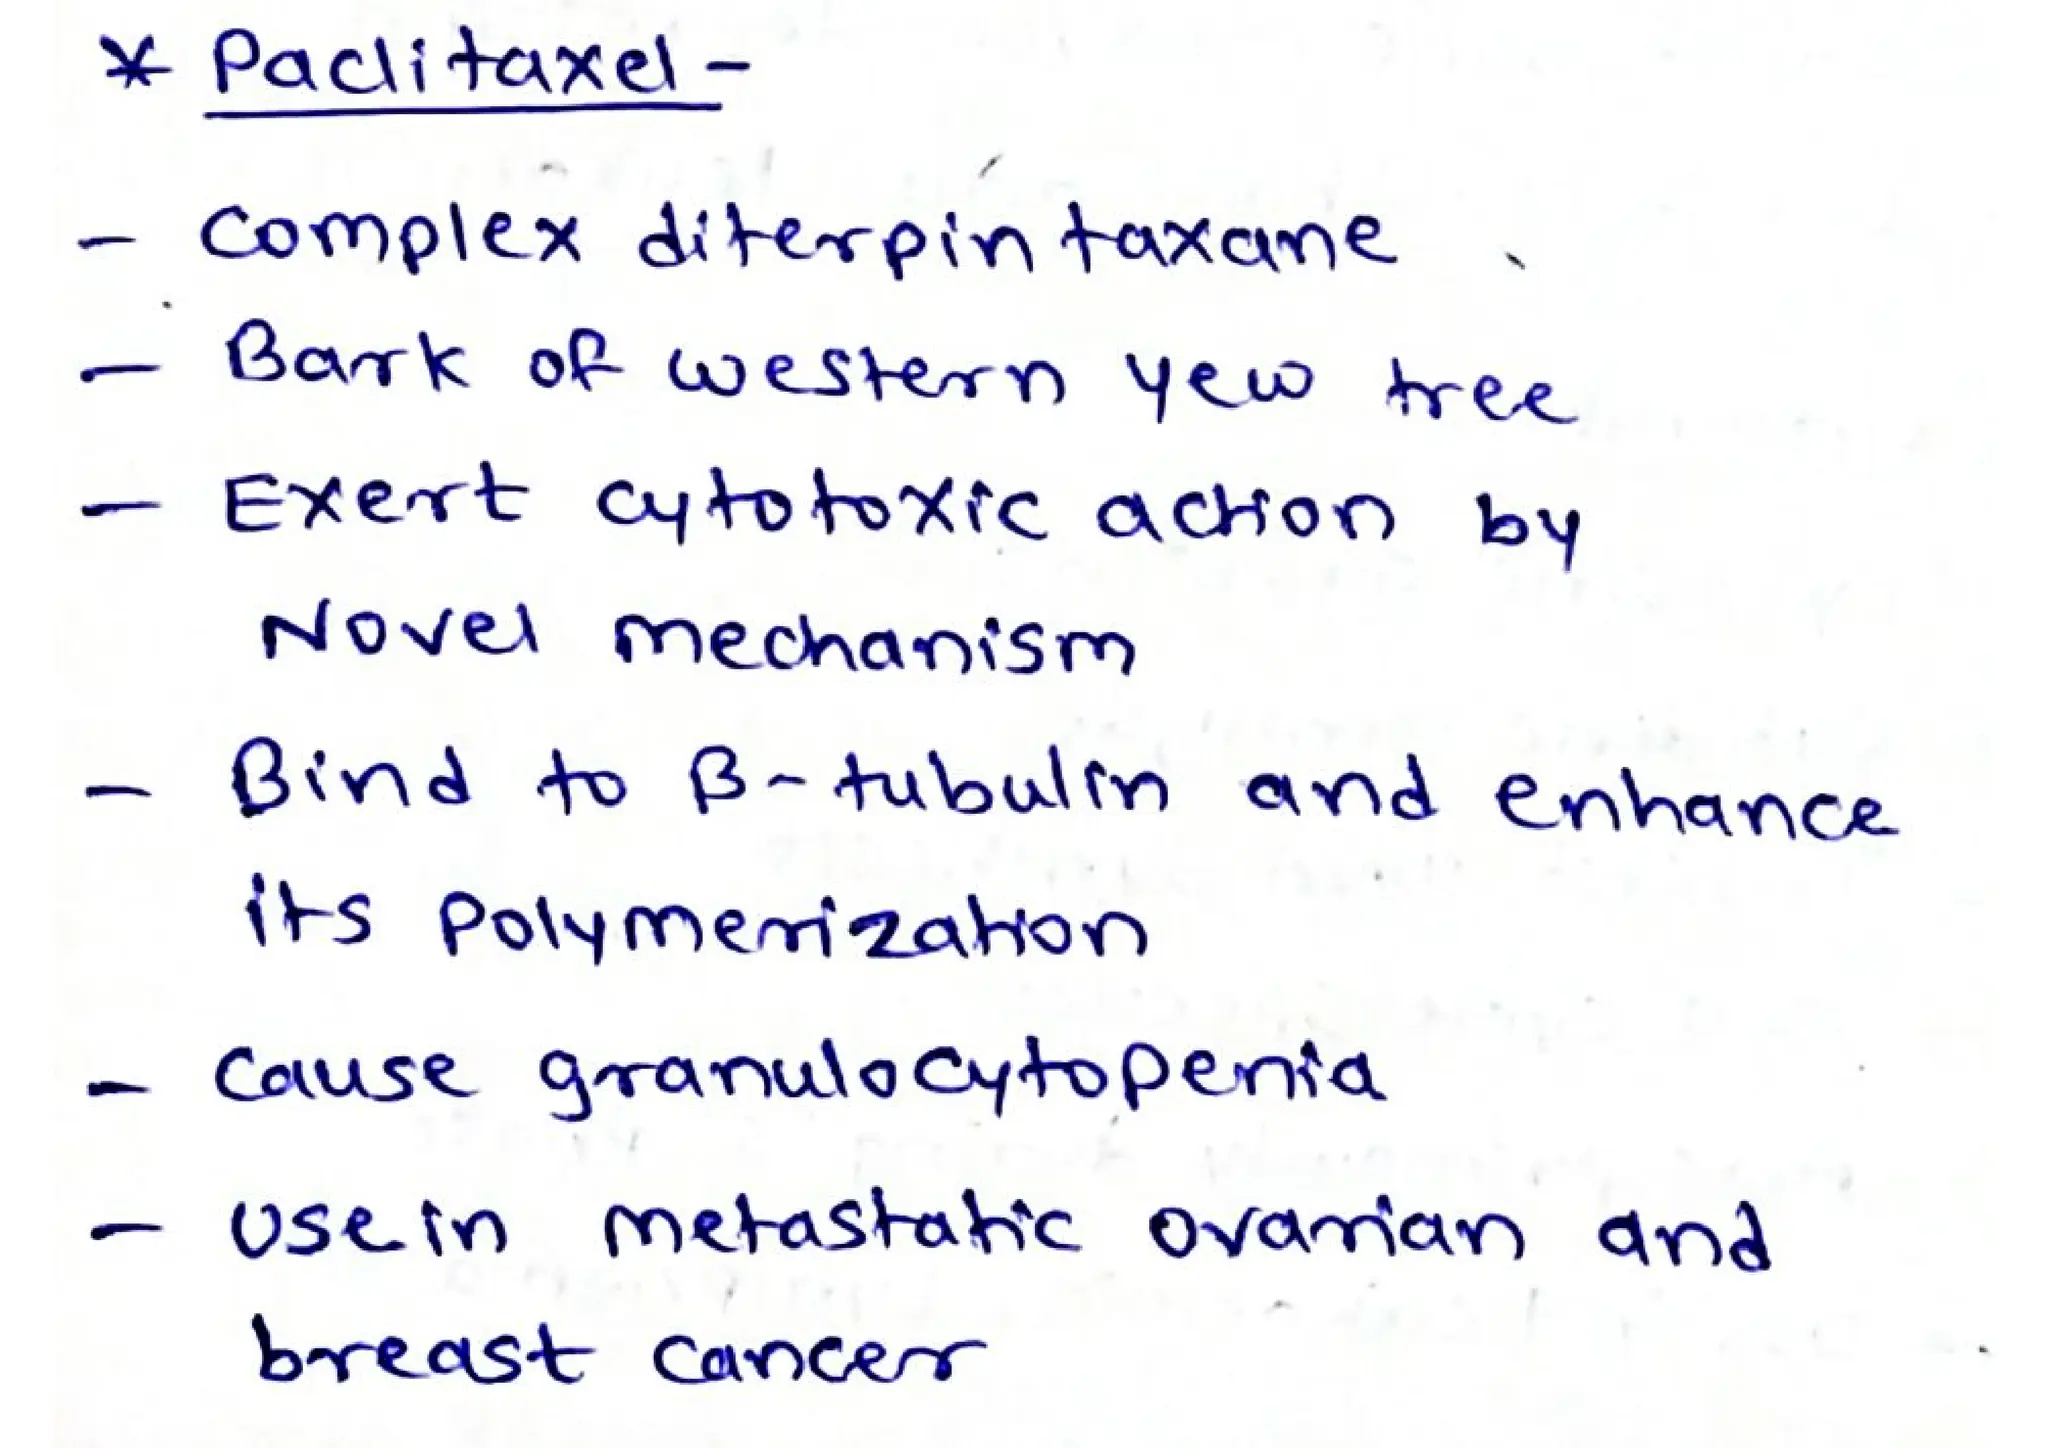 * Paclitaxel -
- Complex diterpin taxane
- Bark of western yew tree
- Exert cytotoxic action by
Novel mechanism
- Bind to β-tubulin and enhance
its polymerization
- Cause granulocytopenia
- Use in metastatic ovarian and
breast cancer